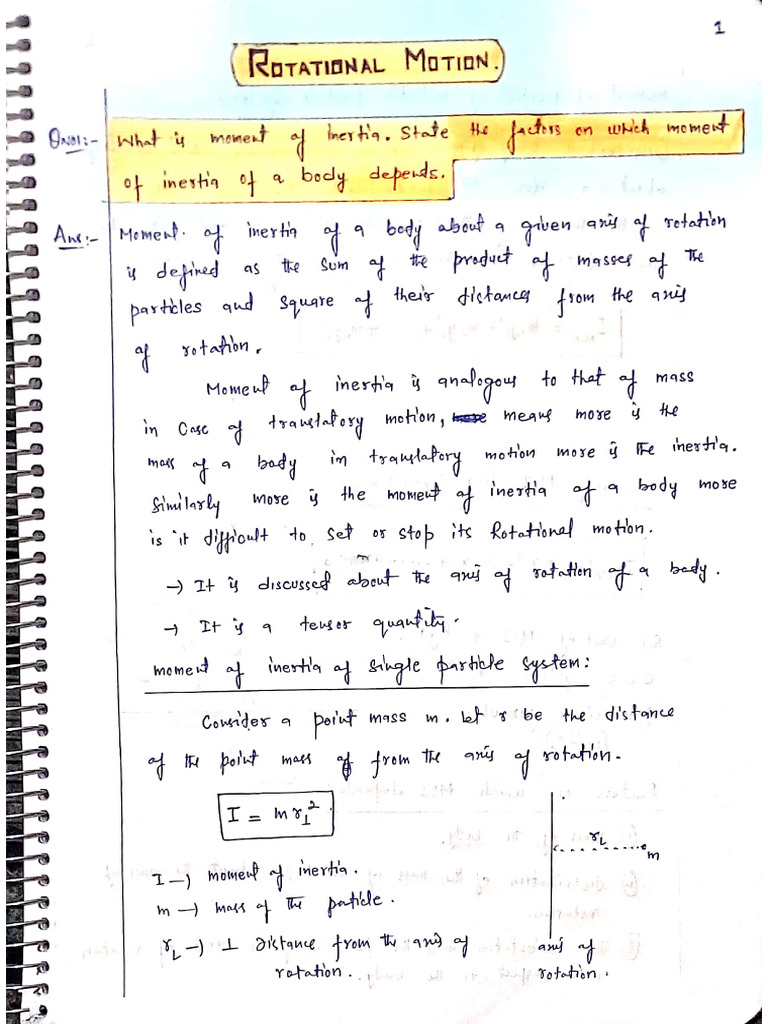 1
ROTATIONAL MOTION.
QNo1:- What is moment of inertia. State the factors on which moment
of inertia of a body depends.
Ans:- Moment. of inertia of a body about a given axis of rotation
is defined as the sum of the product of masses of the
particles and square of their distances from the axis
of rotation.
Moment of inertia is analogous to that of mass
in case of translatory motion, means more is the
mass of a body in translatory motion more is the inertia.
Similarly more is the moment of inertia of a body more
is it difficult to set or stop its Rotational motion.
→ It is discussed about the axis of rotation of a body.
→ It is a tensor quantity.
moment of inertia of single particle system:
Consider a point mass m. let r be the distance
of the point mass from the axis of rotation.
I = m r⊥²
r⊥
m
I → moment of inertia.
m → mass of the particle.
r⊥ → ⊥ distance from the axis of
rotation.
axis of
rotation.